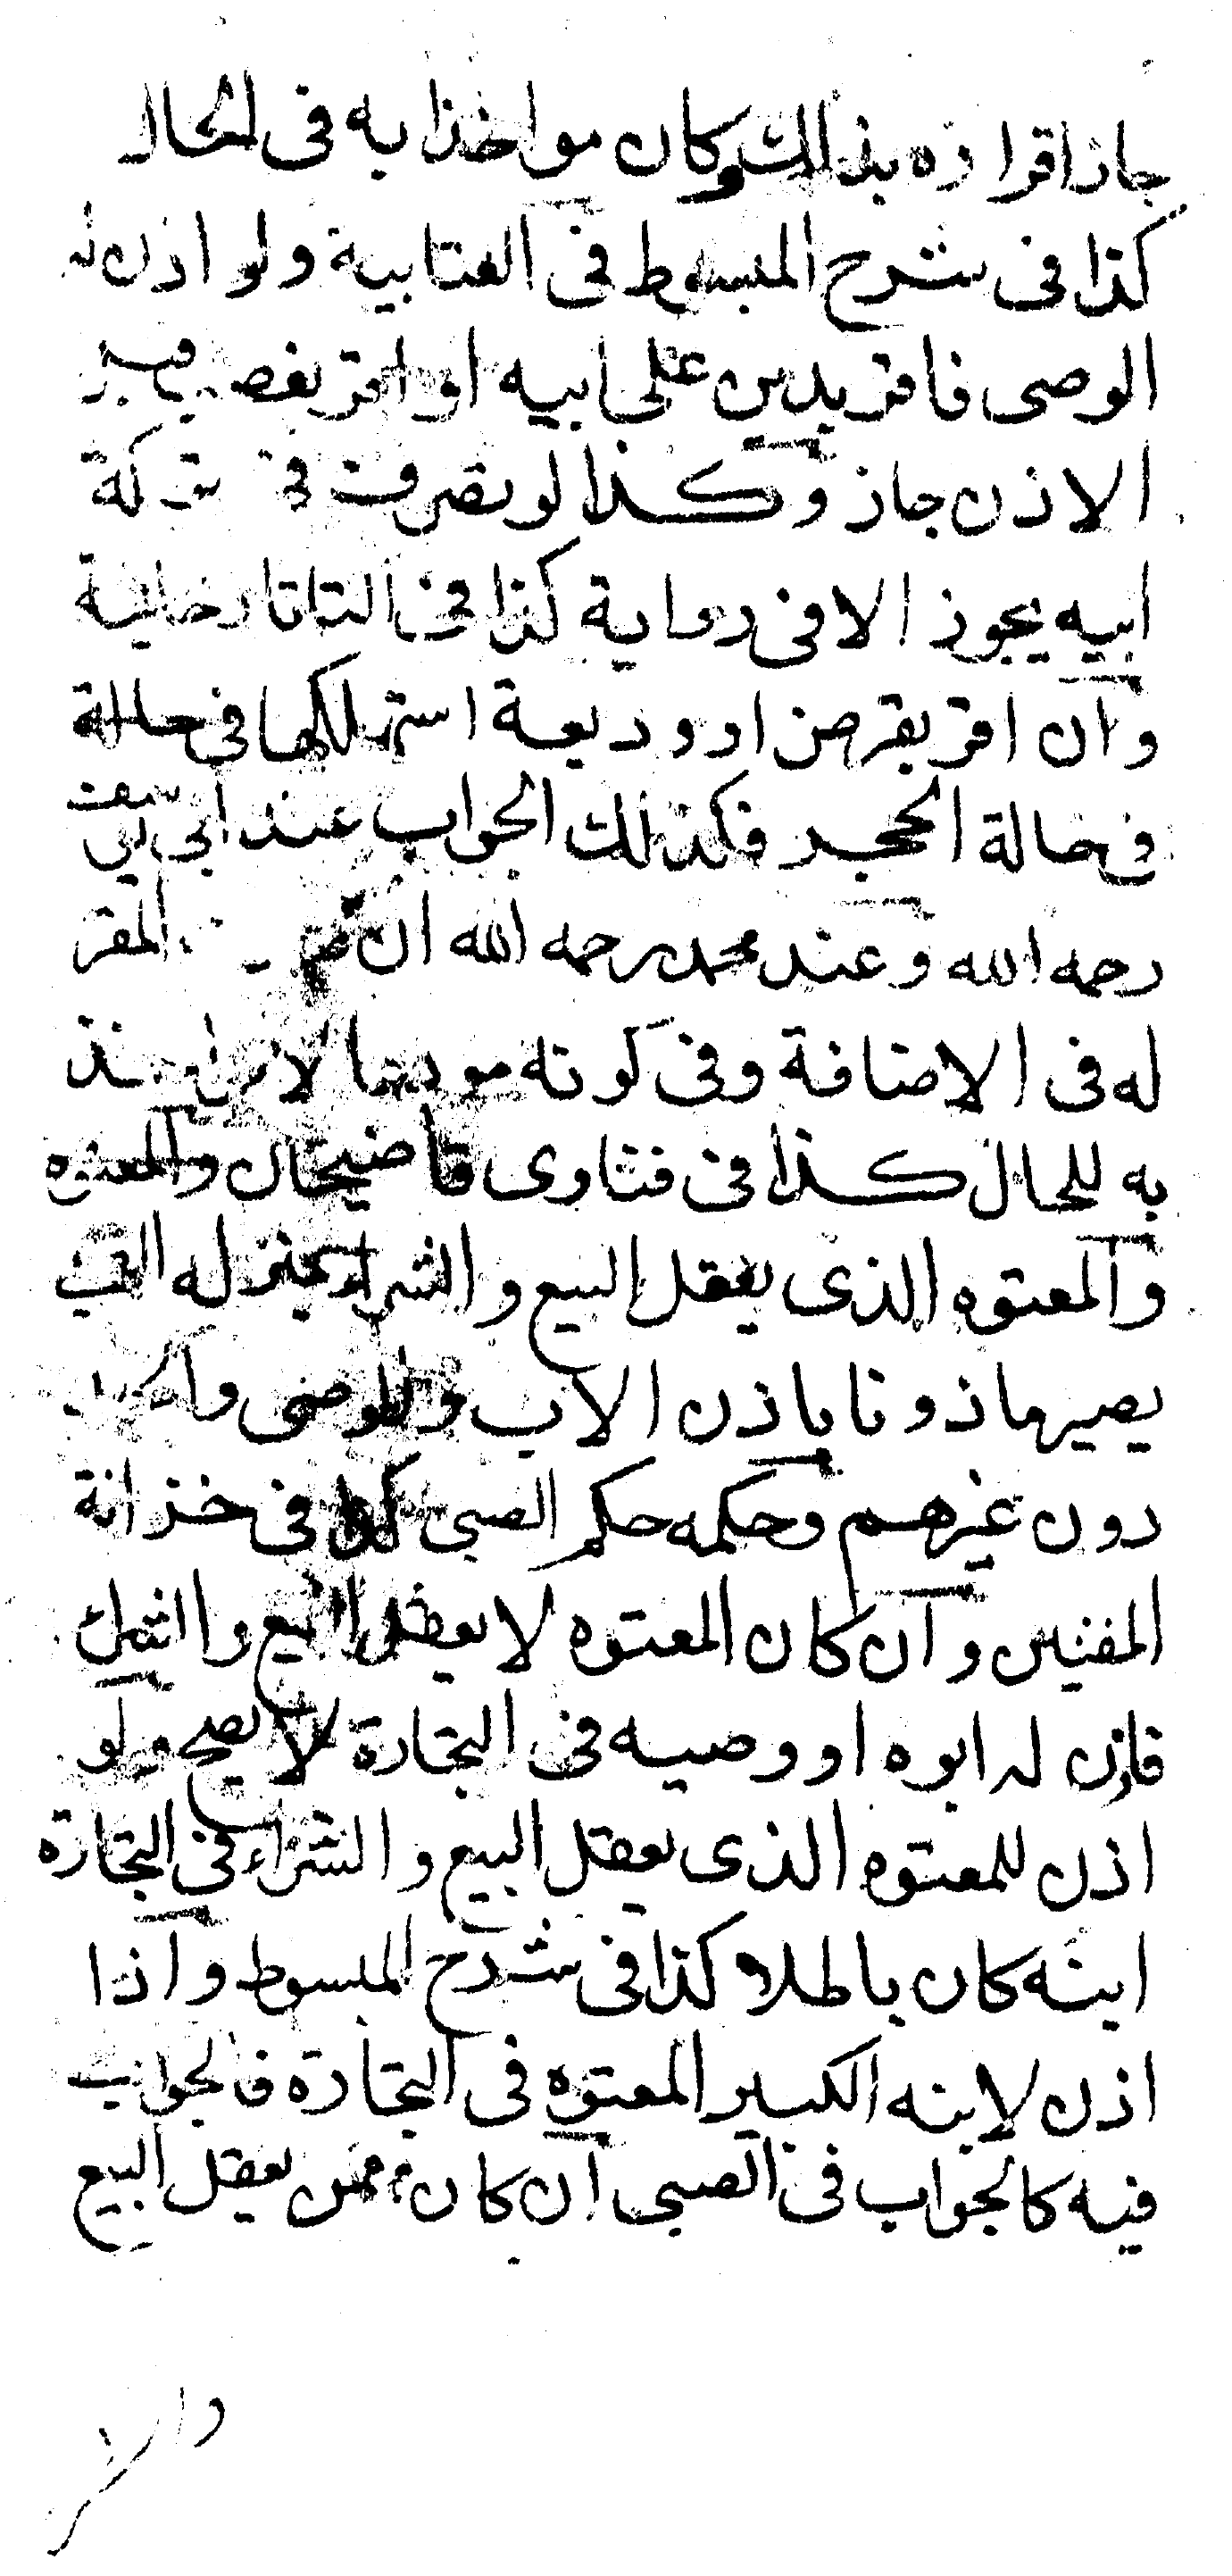 جاز اقراره بذلك وكان مواخذا به فى الحال
كذا فى شرح المبسوط فى العتابية ولو اذن له
الوصى فاقر بدين على ابيه او اقر بغصب قبل
الاذن جاز وكذا لو تصرف فى تركة
ابيه يجوز الا فى رواية كذا فى التاتارخانية
وان اقر بقرض او وديعة استهلكها فى حالة
فى حالة الحجر فكذلك الجواب عند ابى يوسف
رحمه الله وعند محمد رحمه الله ان المقر
له فى الاضافة وفى كونه مودعا لا يواخذ
به للحال كذا فى فتاوى قاضيخان والمعتوه
والمعتوه الذى يعقل البيع والشراء بمنزله الصبى
يصير ماذونا باذن الاب والوصى
دون غيرهم وحكمه حكم الصبى كذا فى خزانة
المفتين وان كان المعتوه لا يعقل البيع والشراء
فاذن له ابوه او وصيه فى التجارة لا يصح ولو
اذن للمعتوه الذى يعقل البيع والشراء فى التجارة
ابنه كان باطلا كذا فى شرح المبسوط واذا
اذن لابنه الكبير المعتوه فى التجارة فالجواب
فيه كالجواب فى الصبى ان كان ممن يعقل البيع